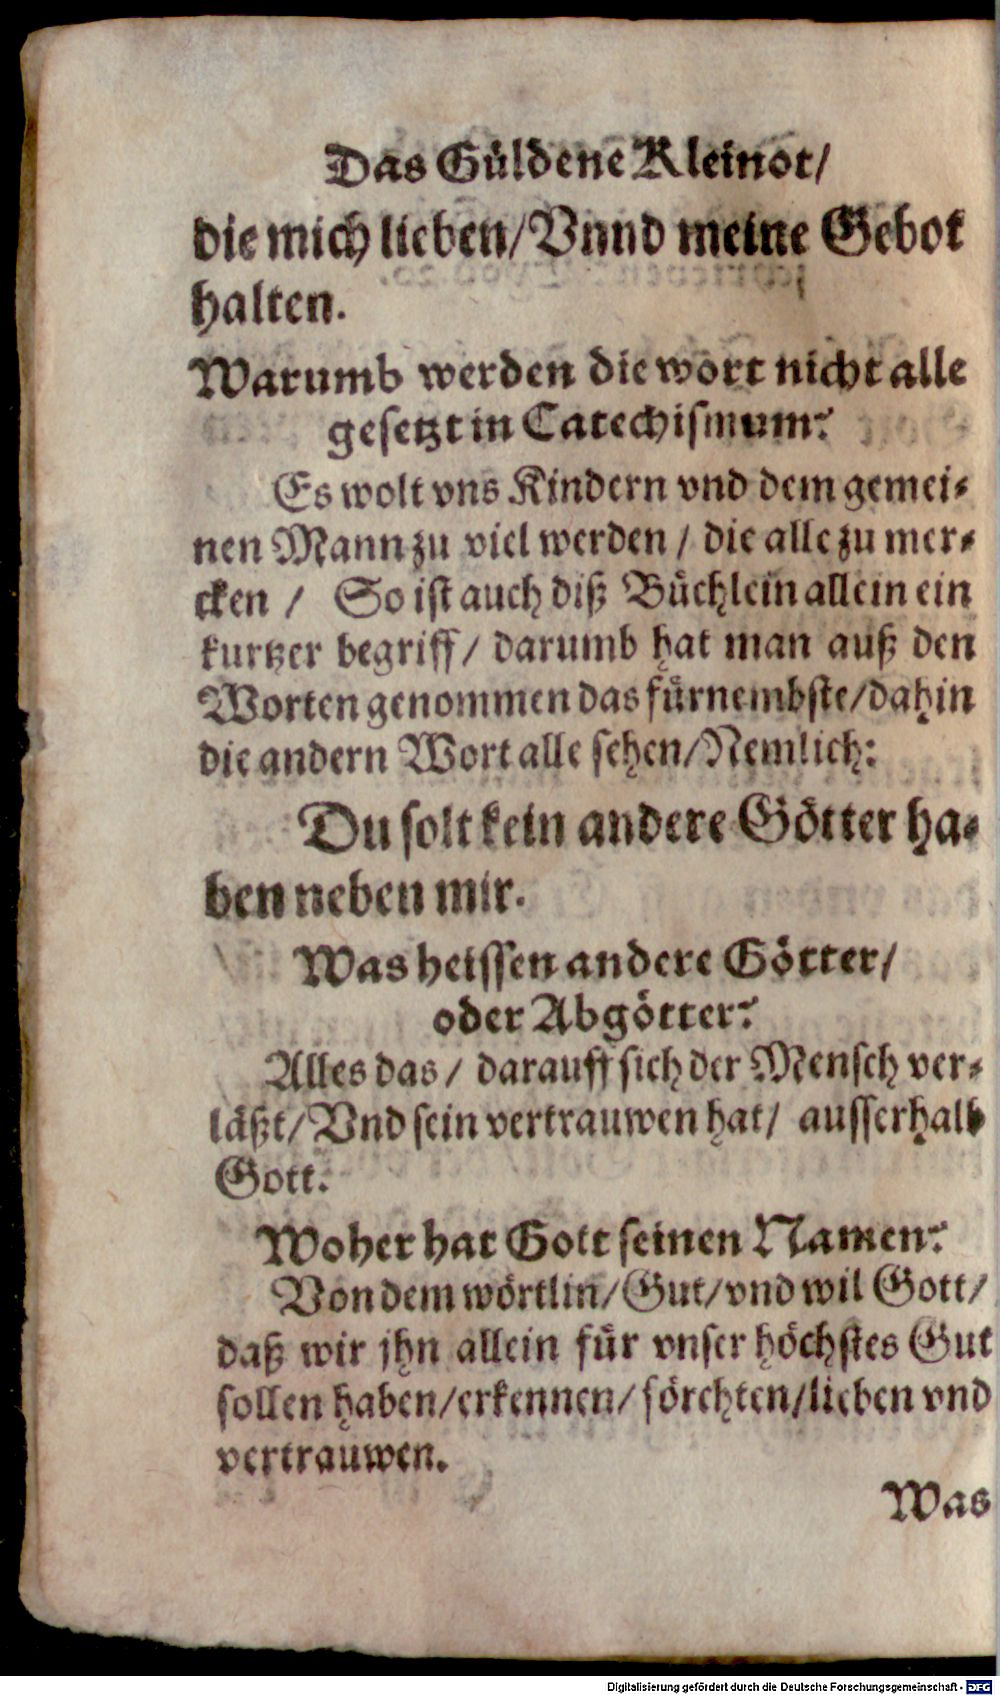 Das Güldene Kleinot/
die mich lieben/Vnnd meine Gebot
halten.
Warumb werden die wort nicht alle
gesetzt in Catechismum?
Es wolt vns Kindern vnd dem gemei-
nen Mann zu viel werden / die alle zu mer-
cken / So ist auch diß Büchlein allein ein
kurtzer begriff / darumb hat man auß den
Worten genommen das fürnembste/dahin
die andern Wort alle sehen/Nemlich:
Du solt kein andere Götter ha-
ben neben mir.
Was heissen andere Götter/
oder Abgötter?
Alles das / darauff sich der Mensch ver-
läßt/Vnd sein vertrauwen hat/ ausserhalb
Gott.
Woher hat Gott seinen Namen?
Von dem wörtlin/Gut/vnd wil Gott/
daß wir jhn allein für vnser höchstes Gut
sollen haben/erkennen/förchten/lieben vnd
vertrauwen.
Was
Digitalisierung gefördert durch die Deutsche Forschungsgemeinschaft - DFG